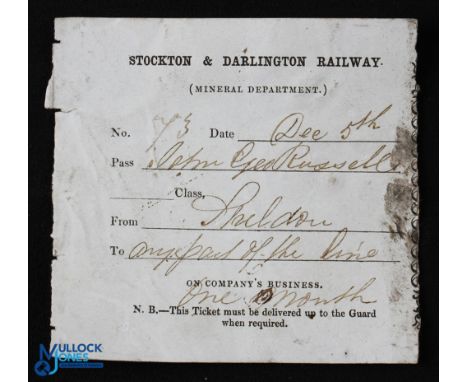 STOCKTON & DARLINGTON RAILWAY.
(MINERAL DEPARTMENT.)
No. 73 Date Dec 5th
Pass John Geo Russell
Class,
From Sheldon
To any part of the line
ON COMPANY'S BUSINESS.
One Month
N. B.—This Ticket must be delivered up to the Guard
when required.
MULLOCK
JONES